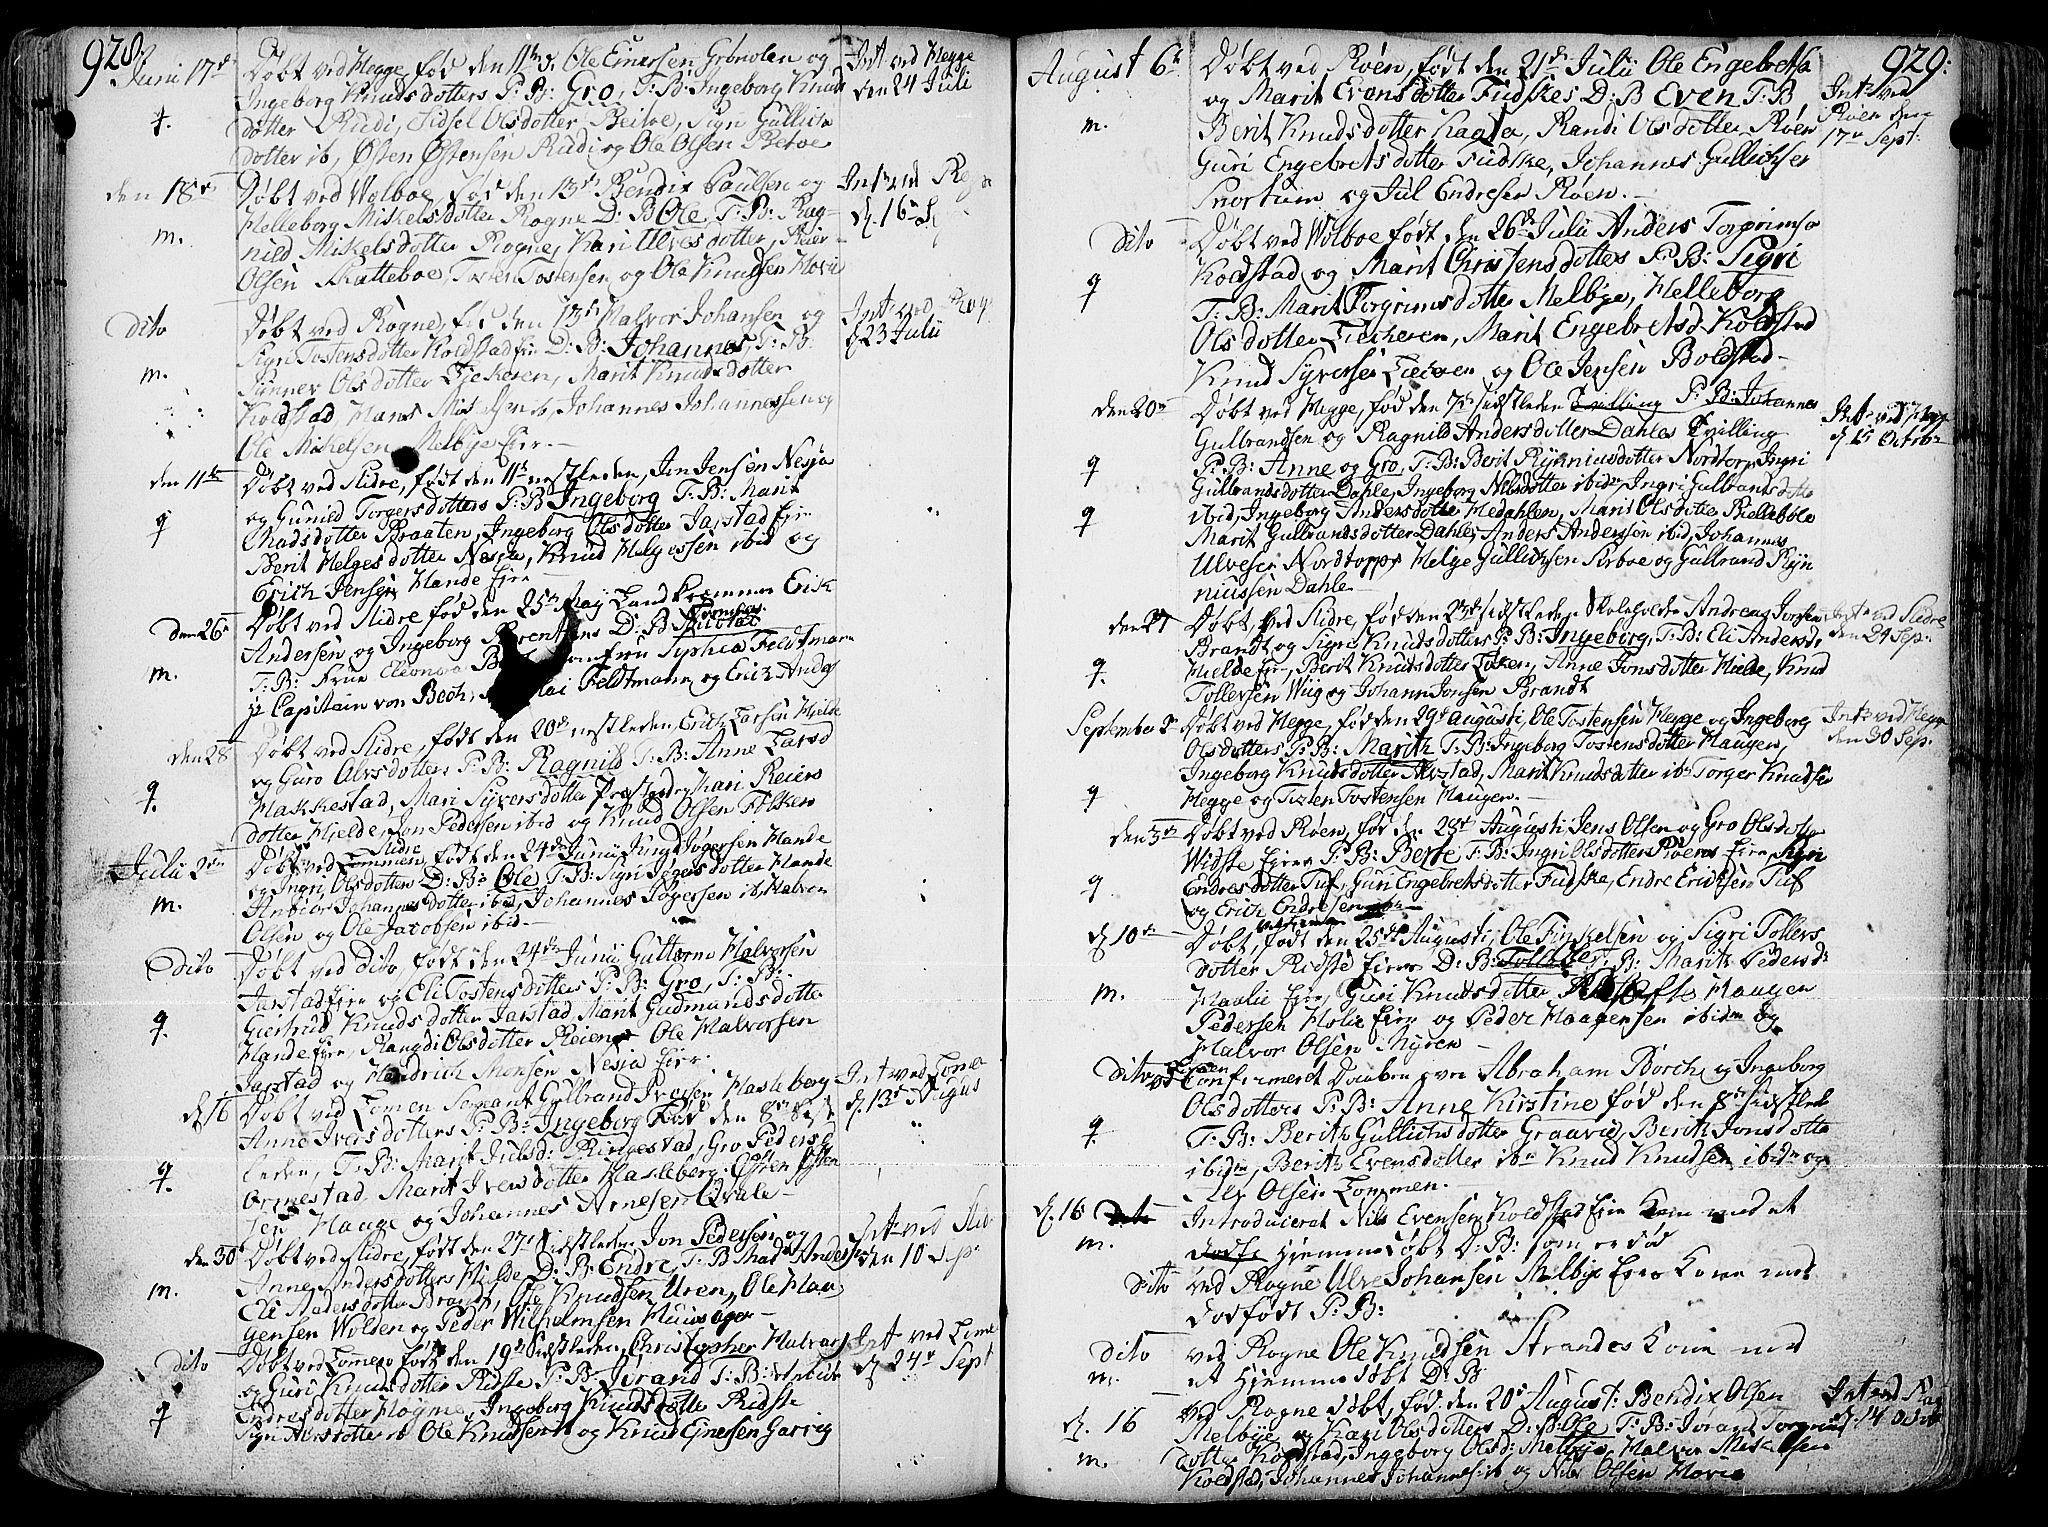 928.
Juni 17de
Døbt ved Hegge, fød den 11te d: Ole Einersen Grønolen og
Ingeborg Knudsdotters P: B: Gro, T: B: Ingeborg Knuds
dotter Rudi, Sidsel Olsdotter Beitoe, Sigri Gullics
dotter ib, Østen Østensen Rudi og Ole Olsen Beitoe
Int ved Hegge
den 24 Julii
den 18de
m.
Døbt ved Wolboe, fød den 13de Bendix Paulsen og
Helleborg Mikelsdotter Rogne D: B Ole, T: B: Rag-
nild Mikelsdotter Rogne, Kari Ulvesdotter, Reier
Olsen Skatteboe, Tosten Tostensen og Ole Knudsen Hovi
Int ved
d. 16
Dito
m.
Døbt ved Rogne, fød den 13de Halvor Johansen og
Sigri Tostensdotter Koldstad D: B: Johannes, T: B:
Synnev Olsdotter Kjekeren, Marit Knudsdotter
Koldstad, Hans Mikelsen ib, Johannes Johannessen og
Ole Mikelsen Melbye Eier.
Int ved Rog
d 23 Julii
den 11te
q
Døbt ved Slidre, født den 11te nestleden, Jon Jensen Nesja
og Gunild Torgersdotters P: B Ingeborg T: B: Marit
Madsdotter Braaten, Ingeborg Olsdotter Jarstad Eier
Berit Helgesdotter Nesja, Knud Helgessen ibid og
Erich Jensen Hande Eier
den 26
m.
Døbt ved Slidre fød den 25de Maj Landkræmmer Erik
Andersen og Ingeborg D: B
T: B: Frue Eleonora Sophia Feldtmann
Hr Capitain von Bech, Feldtmann og Erich Anders
den 28
q.
Døbt ved Slidre, født den 20de nestleden, Erich Larsen Hielde
og Guro Alvsdotters P: B: Ragnild T: B: Anne Larsd
Hakkestad, Mari Syversdotter Kari Reiers
dotter Hielde, Jon Pedersen ibid og Knud Olsen Folken
Julii 2den
m.
Døbt ved Slidre, født den 24de Junii Jungd Jøgersen Hande
og Ingri Olsdotters D: B: Ole, T: B: Sigri Jøgersdotter Hande
Anbiør Johannesdotter ibid, Johannes Jøgersen ib, Halvor
Olsen og Ole Jacobsen ibid
Dito
q.
Døbt ved Dito, født den 24de Junii Guttorm Halvorsen
Jarstad Eier og Eli Tostensdotters P: B: Gro, T: B:
Giertrud Knudsdotter Jarstad, Marit Gudmundsdotter
Hande Eier, Rangdi Olsdotter Reien Ole Halvorsen
Jarstad og Hendrich Monsen Nesja Eier.
d. 16
q.
Døbt ved Lomen Sergant Gulbrand Iversen Hasleberg
Anne Iversdotters P: B: Ingeborg fød den 8de sidst
leden, T: B: Marit Julsd: Ringestad, Gro Pedersd
Ormestad, Marit Iversdotter Hasleberg. Østen Østen
sen Hauge og Johannes Arnesen Qvale
Int ved Lome
d. 13de Augus
den 30
m.
Døbt ved Slidre, født den 27de sidstleden, Jon Pedersen og
Anne Andersdotters Hielde, D: B: Endre, T: B
Eli Andersdotter Brandt, Ole Knudsen Uren, Ole Haa
gensen Wolden og Peder Wilhelmsen Huusager
Int ved Slid
den 10 Sep
Dito
q
Døbt ved Lomen født den 19de sidstleden, Christopher Halvors
og Guri Knudsdotter Ridste P: B: Jørand T: B: Anbiør
Endresdotter Hogne, Ingeborg Knudsdotter Ridste
Sigri Alvsdotter ib Ole Knudsen ib og Knud Ejnersen Garrig
Int ved Lome
d 24de Sept
929.
August 6te
m.
Døbt ved Røen, født den 21de Julii Ole Engebretsen
og Marit Evensdotter Fudskes D: B Even T: B
Berit Knudsdotter Kagta, Randi Olsdotter Røen
Guri Engebretsdotter Fudske, Johannes Gullichsen
Snortum og Jul Endresen Røen.
Int ved
Røen den
17de Sept:
Dito
q
Døbt ved Wolboe født den 26de Julii Anders Torgrimsen
Koldstad og Marit Christensdotters P: B: Sigri
T: B: Marit Torgrimsdotter Melbye, Helleborg
Olsdotter Kiekeren, Marit Engebretsd Koldstad
Knud Syversen og Ole Jensen Boldstad
den 20de
q
q
Døbt ved Hegge, fød den 7de sidstleden Tvilling P: B: Johannes
Gulbrandsen og Ragnild Andersdotter Dahles Tvilling
P: B: Anne og Gro, T: B: Berit Rynniusdotter Nordtorp, Ingri
Gulbrandsdotter Dahle, Ingeborg Nilsdotter ibidm, Ingri Gulbrandsdotter
ibid, Ingeborg Andersdotter Hedahlen, Marit Olsdotter Belleboe
Marit Gulbrandsdotter Dahle, Anders Andersen ibid, Johannes
Ulvesen Nordtorp, Helge Gullichsen Kirboe og Gulbrand Ryn
niussen Dahle
Int ved Heg
d 15 Octobr
den 27
q.
Døbt ved Slidre, fød den 23de sidstleden, Skoleholder Andreas Jonsen
Brandt og Sigri Knudsdotters P: B: Ingeborg, T: B: Eli Andersd:
Hielde Eier, Berit Knudsdotter Anne Jonsdotter Hielde, Knud
Tollevsen Wiig og Johann Jonsen Brandt
Int ved Slidre
den 24 Sep:
September 2de
q
Døbt ved Hegge, fød den 29de Augusti, Ole Tostensen Hegge og Ingeborg
Olsdotters P: B: Marith T: B: Ingeborg Tostensdotter Haugen,
Ingeborg Knudsdotter Alvstad, Marit Knudsdotter ib Torger Knudsen
Hegge og Tosten Tostensen Haugen.
Int ved Hegge
den 30 Sep.
den 3de
q
Døbt ved Røen, fød den 28de Augusti Jens Olsen og Gro Olsdotter
Widste Eiere P: B: Berte T: B: Ingri Olsdotter Røens Eier, Sigri
Endresdotter Tuf, Guri Engebretsdotter Fudske, Endre Erichsen Tuf
og Erich Endresen ibm
d. 10de
m.
Døbt, født den 25de Augusti, Ole Finkelsen og Sigri Tollevs
dotter Ridste Eiere D: B: Tolleif T: B: Marith Pedersd:
Haalie Eier, Guri Knudsdotter Haagen
Pedersen Holie Eier og Peder Haagensen ibidm og
Halvor Olsen Myren
Dito
q.
Confirmeret Daaben over Abraham Borch og Ingeborg
Olsdotters P: B: Anne Kirstine fød den 8de sidstleden
T: B: Berith Gullichsdotter Graavie, Berith Jonsdotter
ibidm, Berith Evensdotter ibm Knud Knudsen ibidm og
Alv Olsen Lommen.
d. 16
m.
Introducerat Nils Evensen Koldstad Eier Kone med et
Hjemme døbt D: B: som er død
Dito
ved Rogne Ulve Johansen Melbye Eiers Kone med
Dødfødt P: B:
Dito
m.
ved Rogne Ole Knudsen Strandes Kone med
et Hjemmedøbt D: B
d. 16
m.
Ved Rogne døbt, fød den 20de August: Bendix Olsen
Melbye og Kari Olsdotters D: B: Ole T: B: Jørand Torgrims
dotter Koldstad, Ingeborg Olsd: Melbye, Halvor Mikkelsen
Koldstad, Johannes Johannesen ib og Nils Olsen Hovie
Int ved Rog
d. 14 Octob